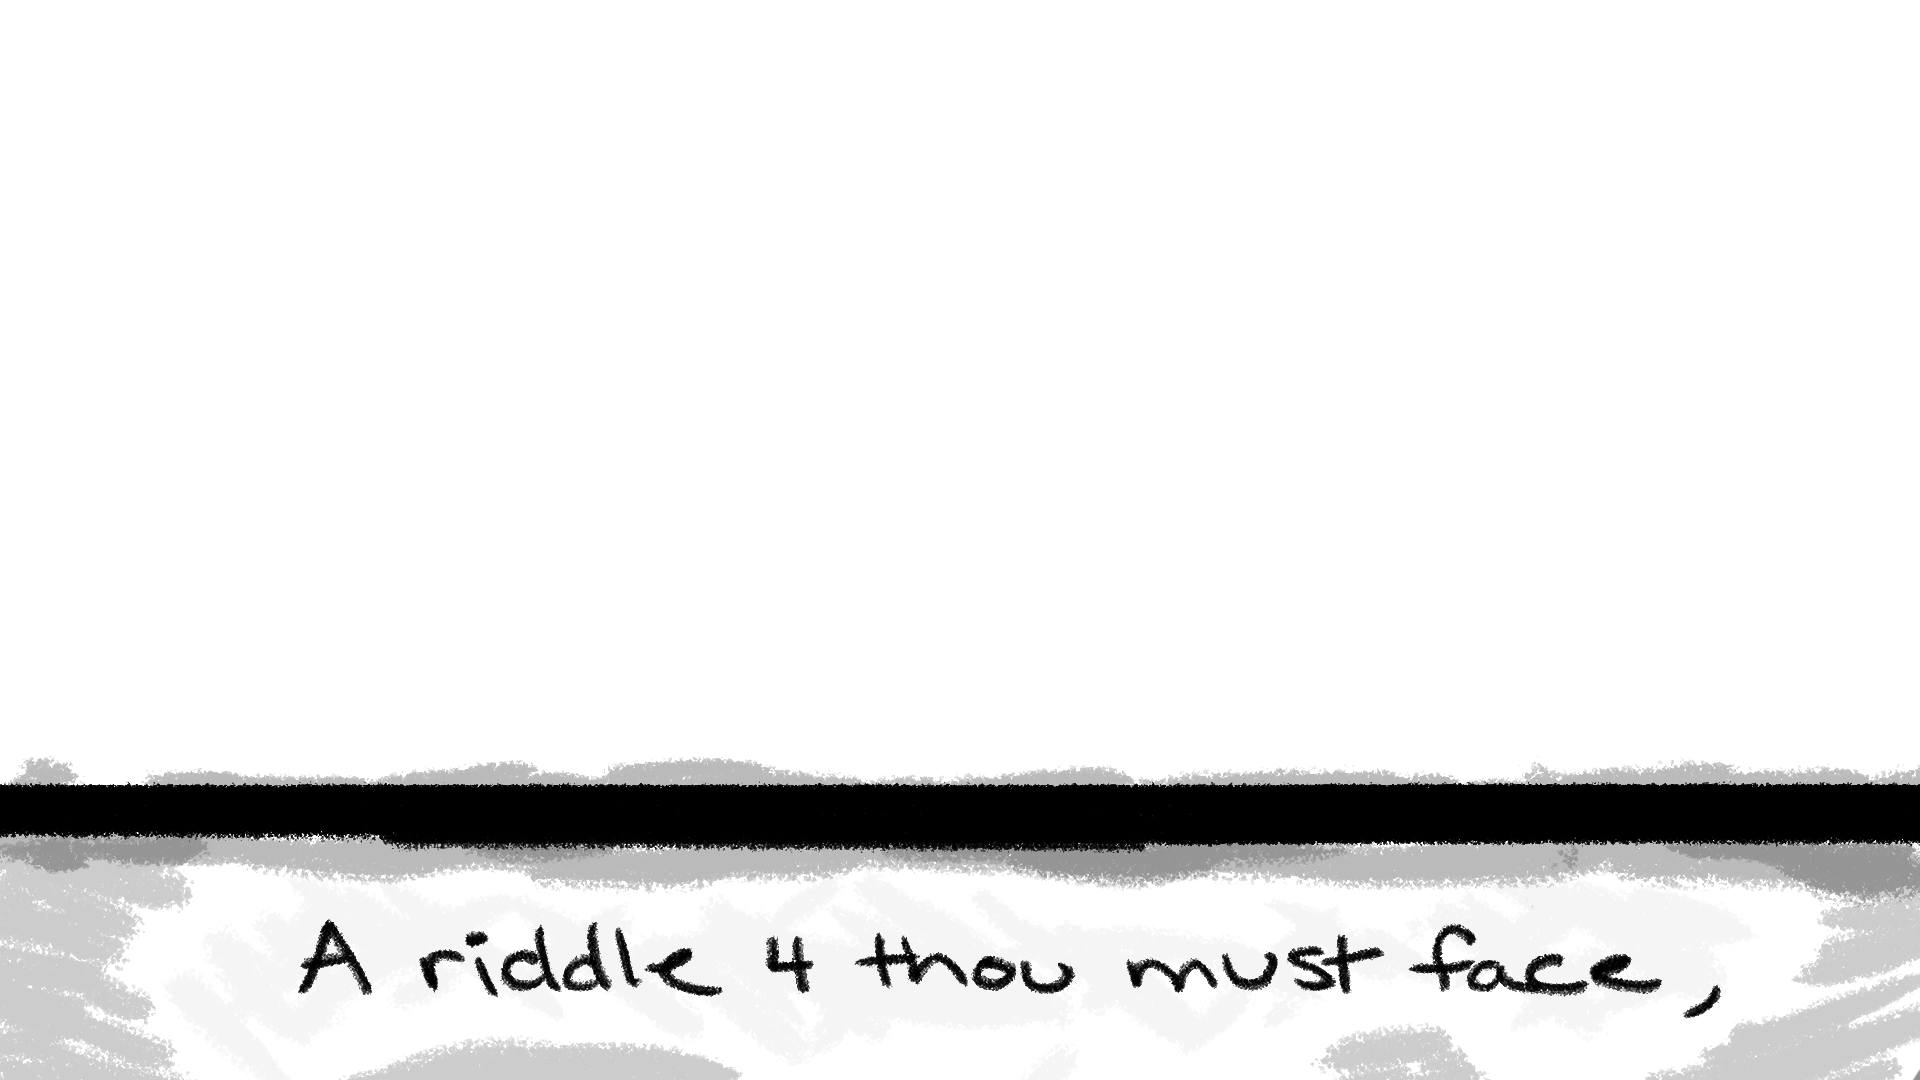 A riddle 4 thou must face,